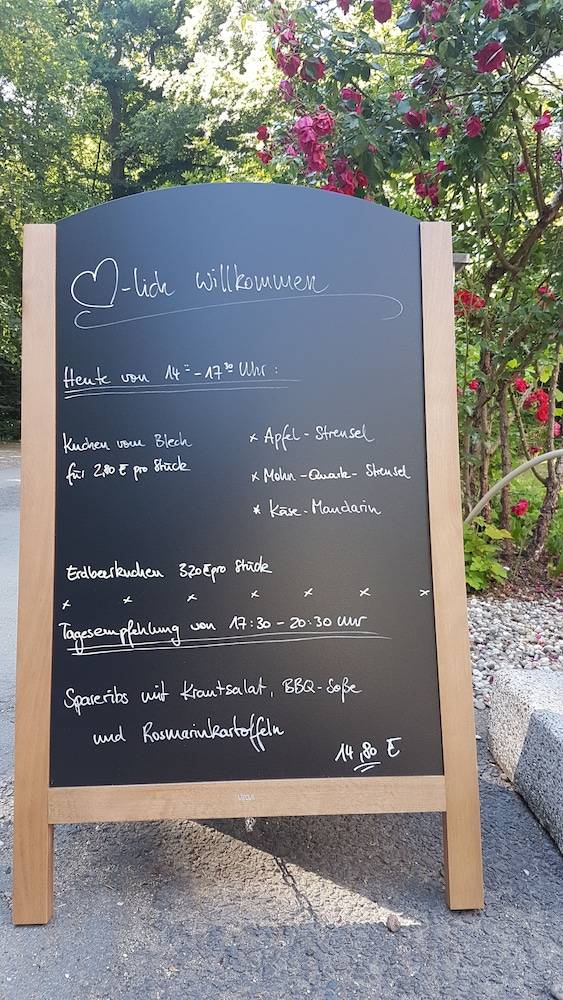 ♡-lich willkommen
Heute von 14⁰⁰ - 17³⁰ Uhr :
Kuchen vom Blech
für 2,80 € pro Stück
x Apfel - Streusel
x Mohn - Quark - Streusel
x Käse - Mandarin
Erdbeerkuchen 3,20 € pro Stück
x x x x x x x
Tagesempfehlung von 17:30 - 20:30 Uhr
Spareribs mit Krautsalat, BBQ-Soße
und Rosmarinkartoffeln
14,80 €